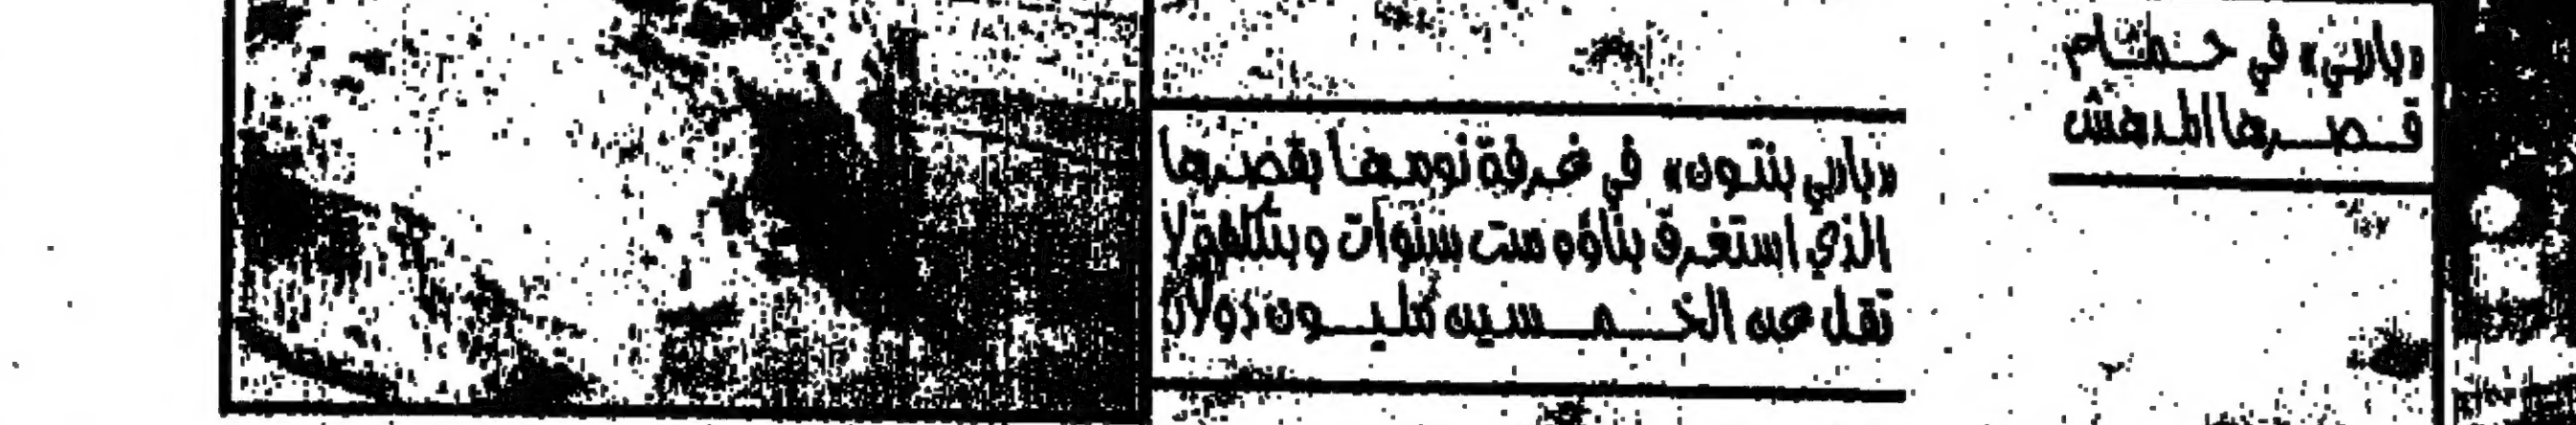 «باربي» في حمام
قصرها المدهش
«باربي بنتون» في غرفة نومها بقصرها
الذي استغرق بناؤه ست سنوات وبتكلفة لا
تقل عن الخمسين مليون دولار